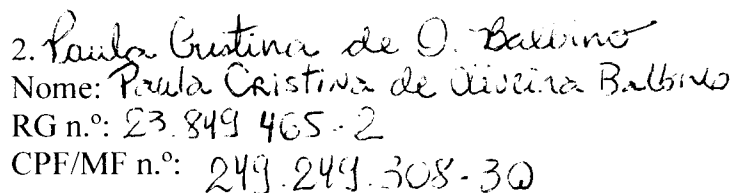 2. Paula Cristina de O. Balbino
Nome: Paula Cristina de Oliveira Balbino
RG n.º: 23.849 465-2
CPF/MF n.º: 249.249.308-30